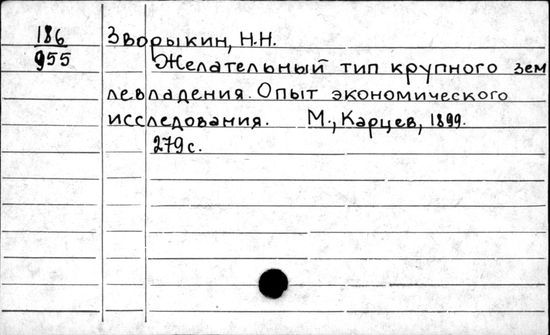 186
955
Зворыкин, Н.Н.
Желательный тип крупного зем
левладения. Опыт экономического
исследования. М., Карцев, 1899.
279 с.